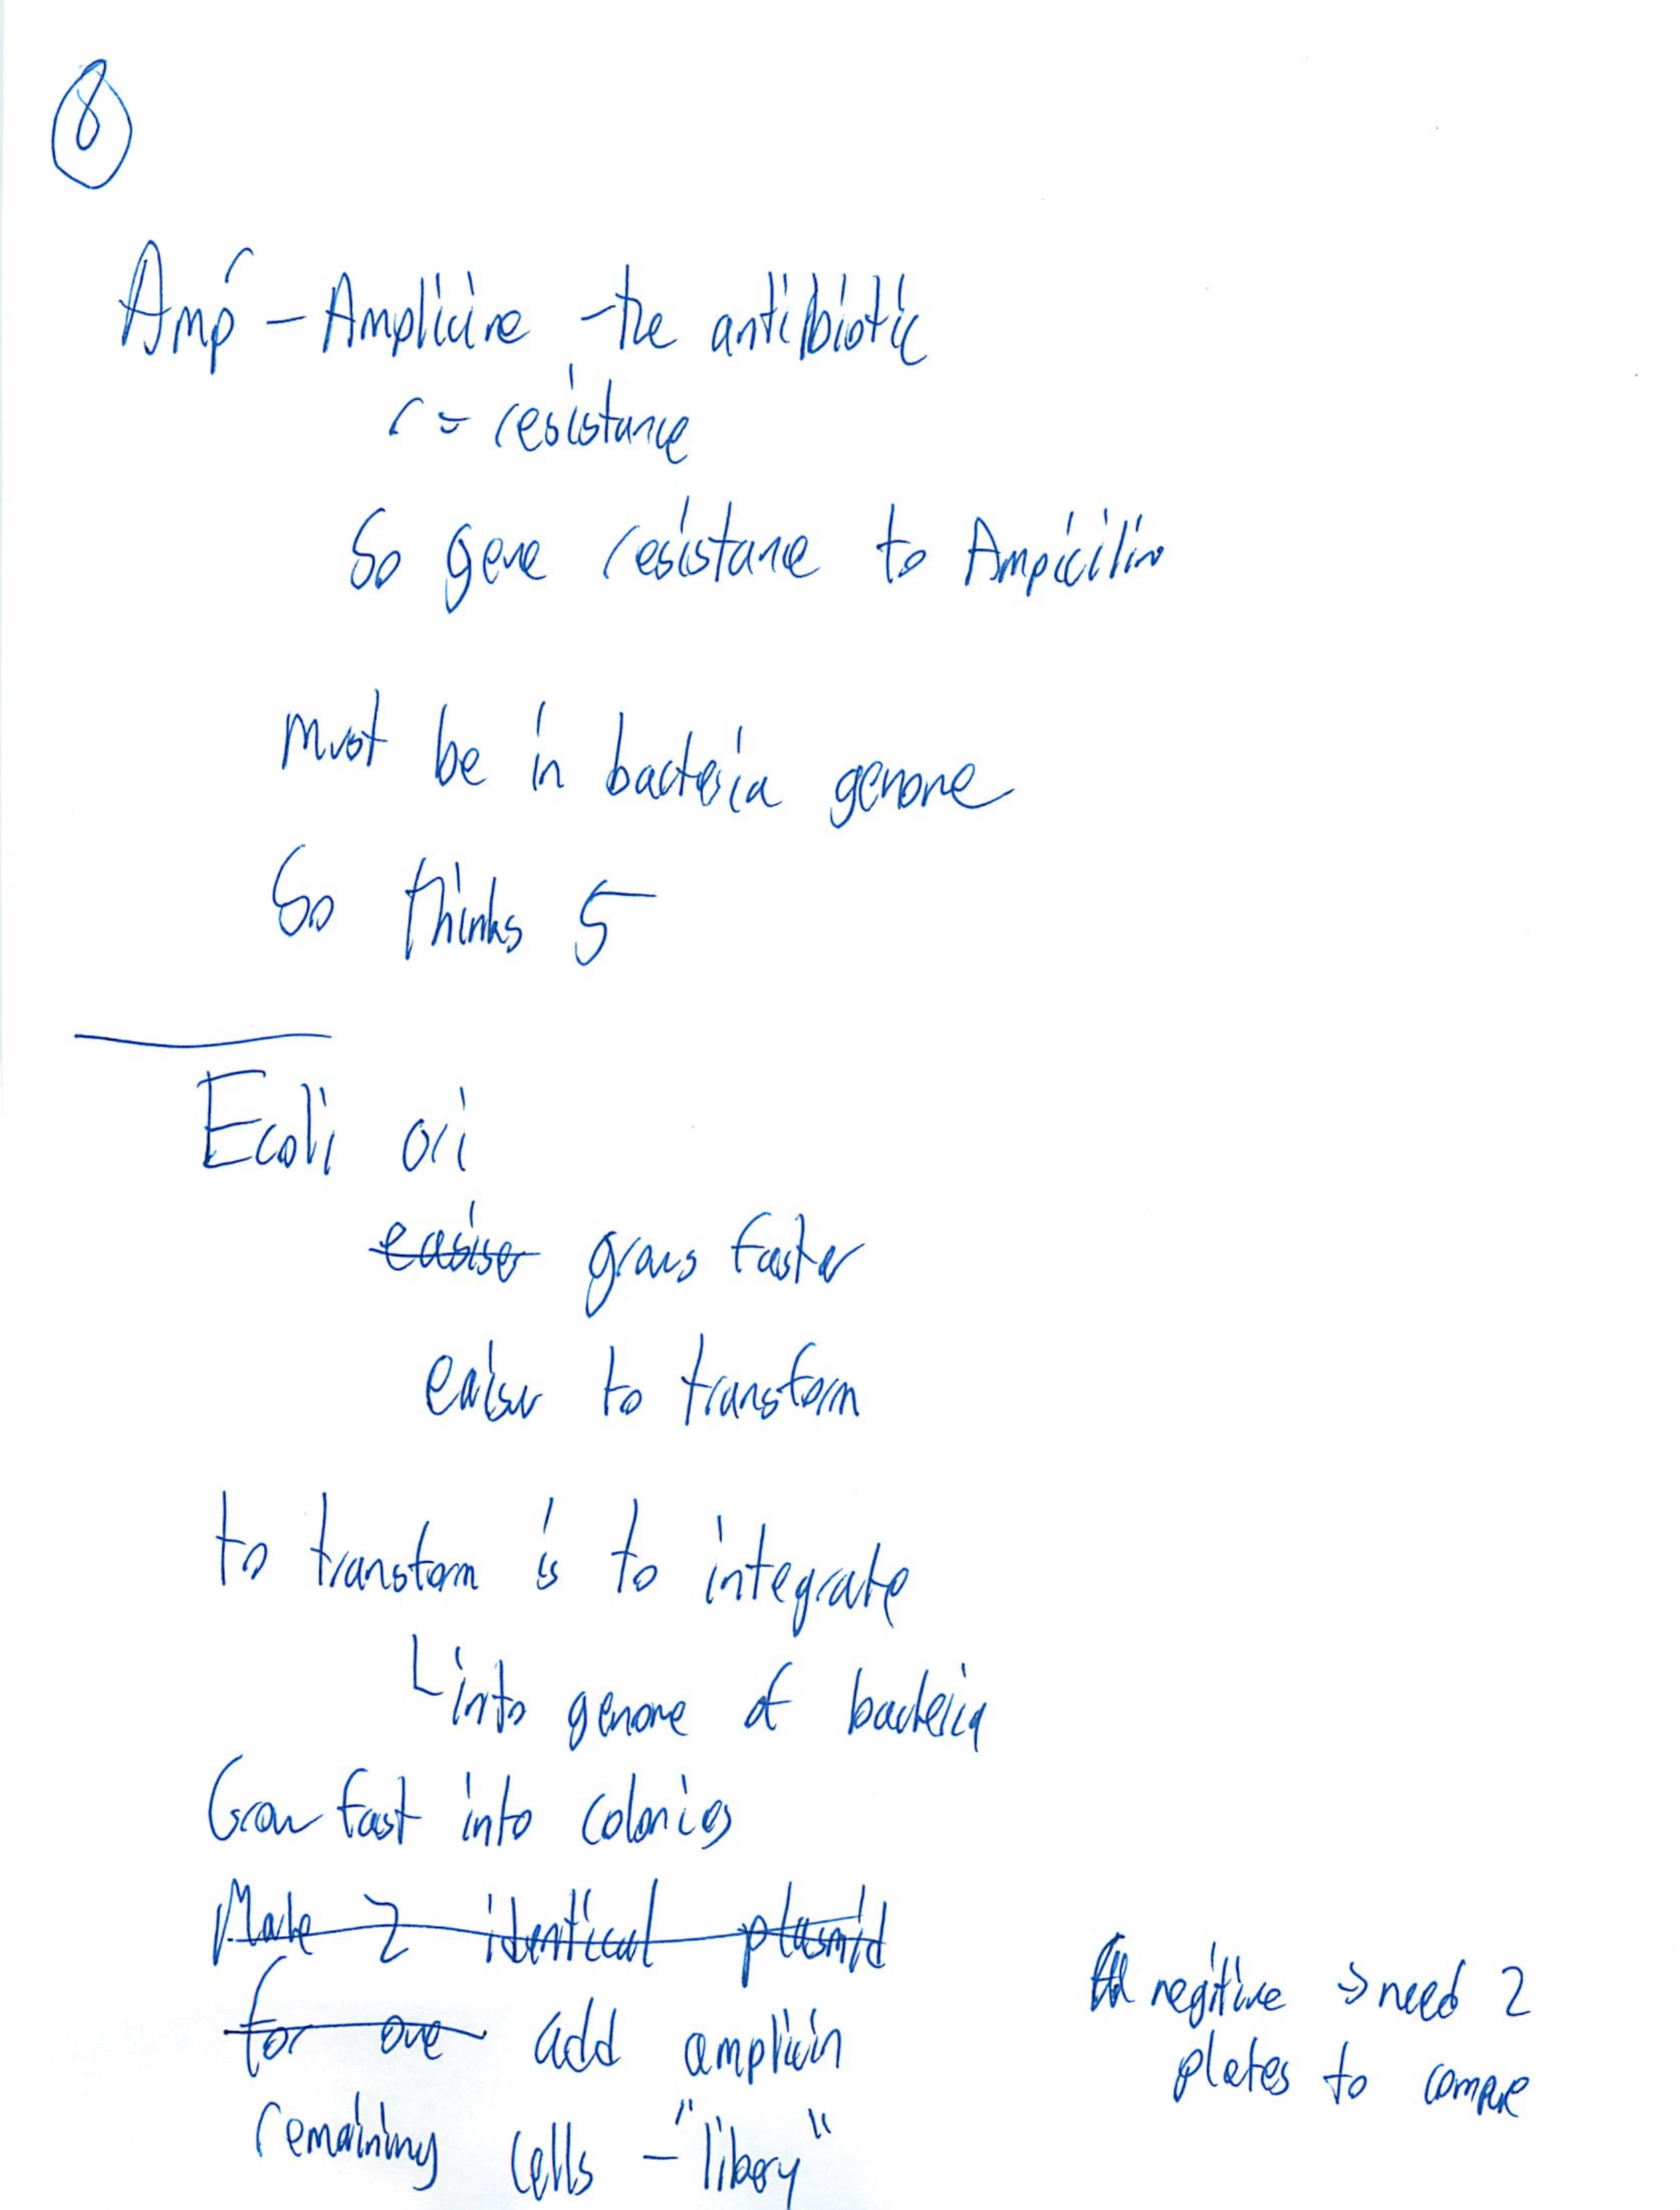 8
Ampʳ - Amplicine - the antibiotic
r = resistance
So gene resistance to Ampicilin
must be in bacteria genome
So thinks 5
Ecoli ori
easiser grows faster
eaiser to transform
to transform is to integrate
into genome of bacteria
Grow fast into colonies
Make 2 identical plasmid
for one add amplicin
remaining cells - "libary"
negitive → need 2
plates to compare